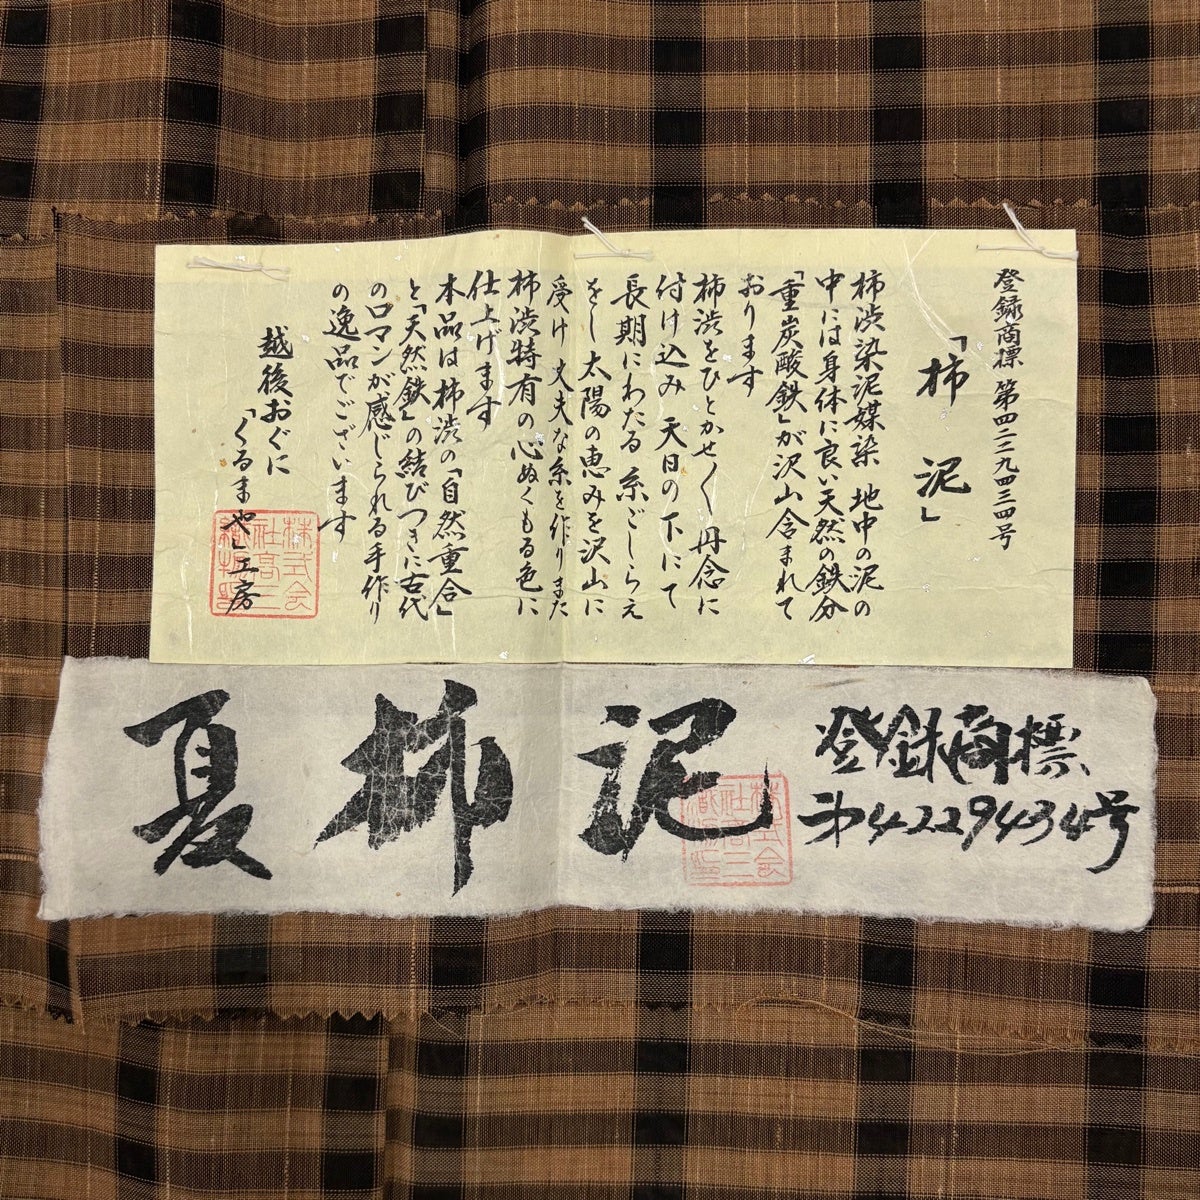 登録商標 第四二二九四三四号
「柿 泥」
柿渋染泥媒染 地中の泥の
中には身体に良い天然の鉄分
「重炭酸鉄」が沢山含まれて
おります
柿渋をひとかせ〱丹念に
付け込み 天日の下にて
長期にわたる糸ごしらえ
をし太陽の恵みを沢山に
受け 丈夫な糸を作りまた
柿渋特有の心ぬくもる色に
仕上げます
本品は柿渋の「自然重合」
と「天然鉄」の結びつきに古代
のロマンが感じられる手作り
の逸品でございます
越後おぐに
「くるまや」工房
株式会
社高三
夏柿泥
登録商標
第4229434号
株式会
社高三